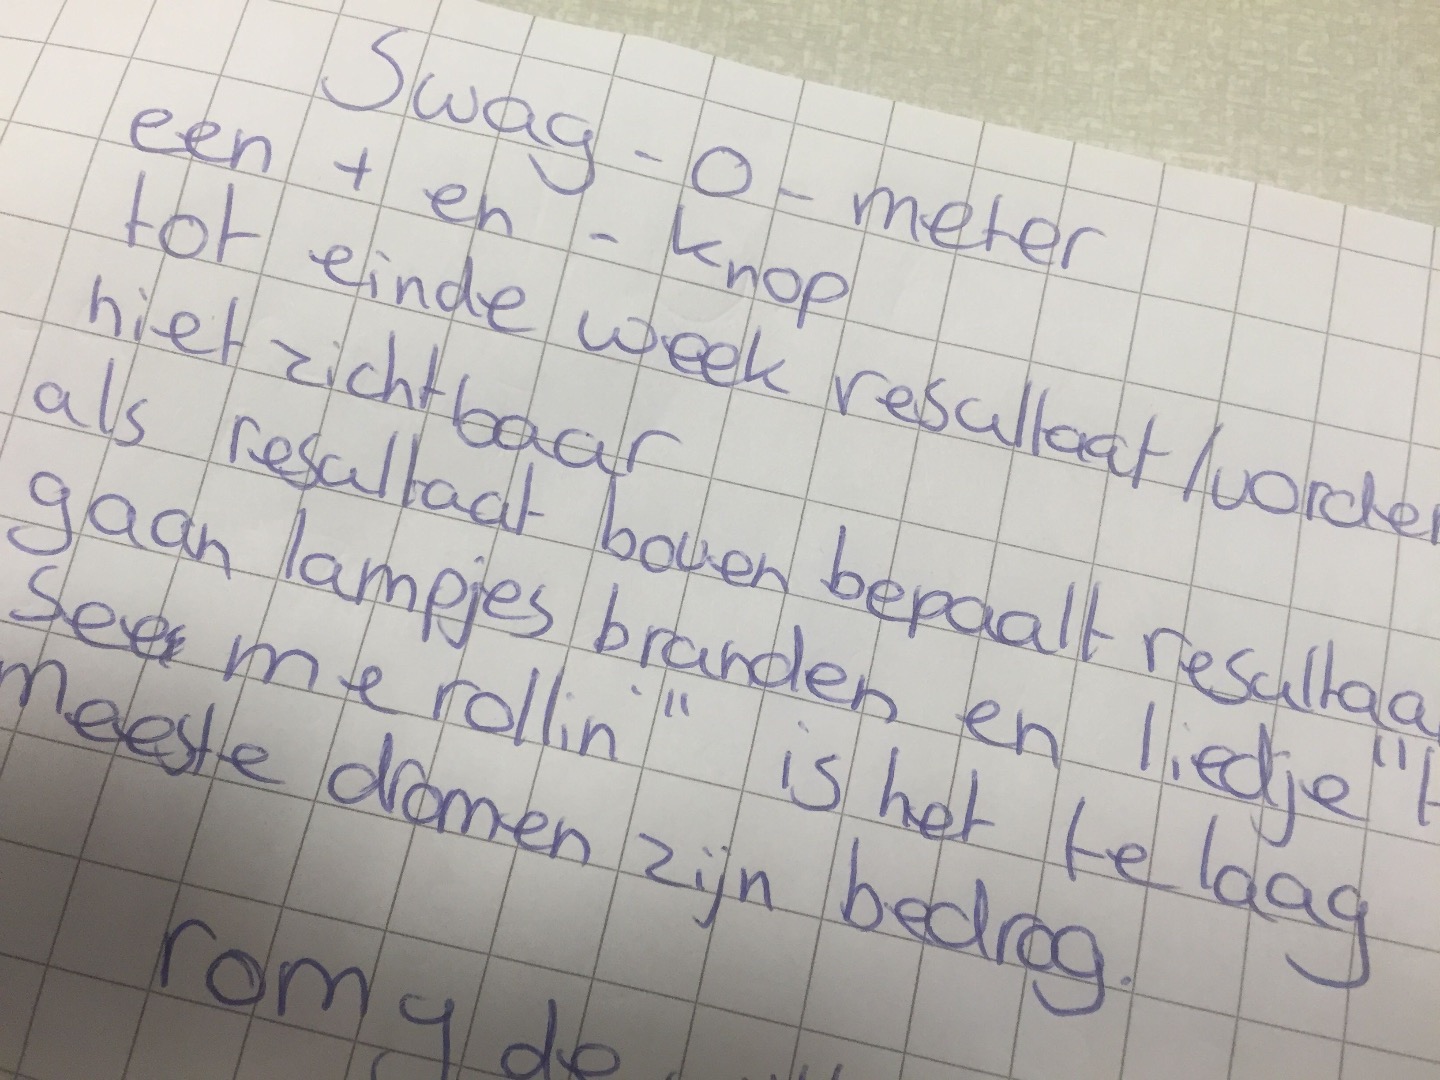 Swag-O-meter
een + en - knop
tot einde week resultaat/vorder
niet zichtbaar
als resultaat boven bepaalt resultaa
gaan lampjes branden en liedje "t
See me rollin'" is het te laag
meeste dromen zijn bedrog.
romy de